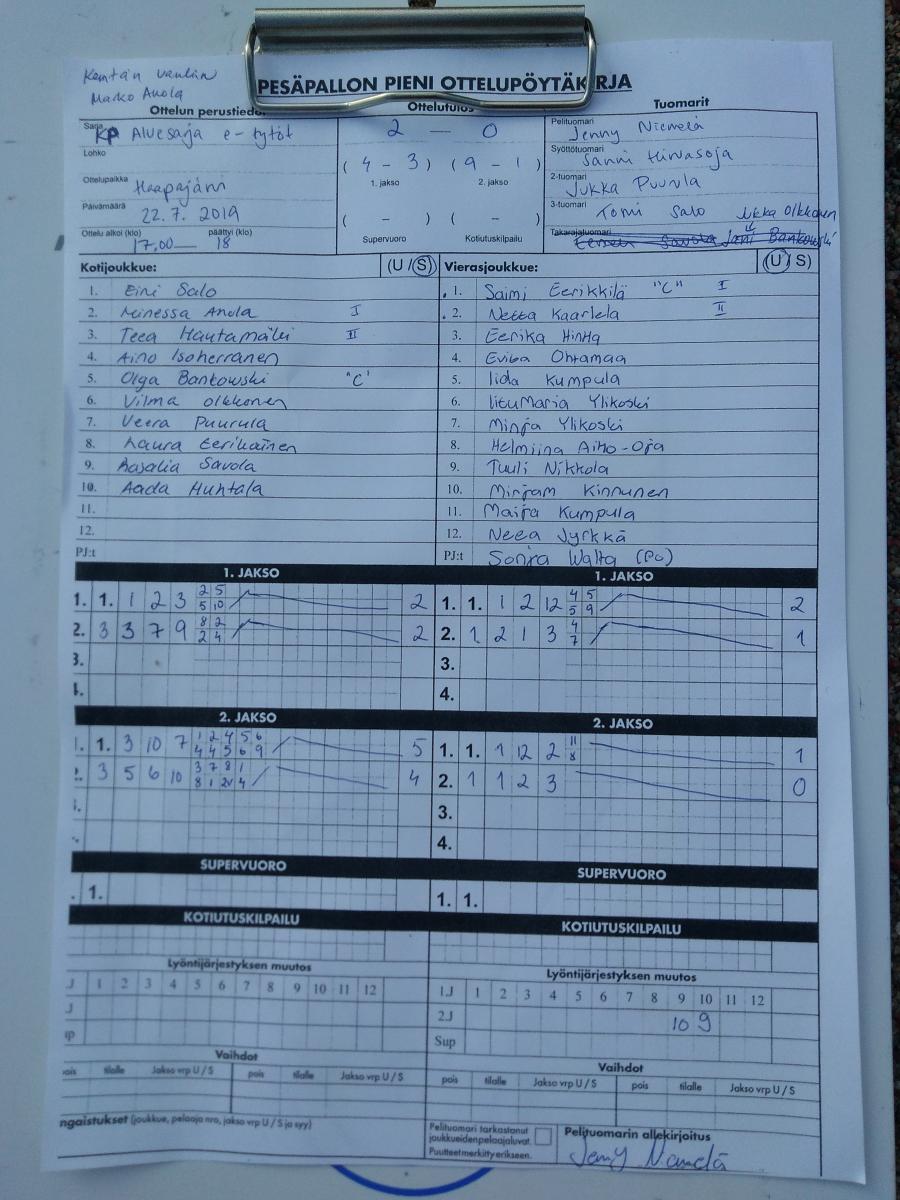 Kentän vanhin
Marko Anola
PESÄPALLON PIENI OTTELUPÖYTÄKIRJA
Ottelun perustiedot
Ottelutulos
Tuomarit
Sarja KP Aluesarja e-tytöt
2 - 0
Pelituomari Jenny Niemelä
Lohko
(4 - 3) (9 - 1)
Syöttötuomari Sanni Hirvasoja
1. jakso 2. jakso
Ottelupaikka Haapajärvi
2-tuomari Jukka Puurula
Päivämäärä 22.7.2019
( - ) ( - )
3-tuomari Tomi Salo Jukka Olkkonen
Ottelu alkoi (klo) päättyi (klo)
17,00 — 18
Supervuoro Kotiutuskilpailu
Takarajatuomari Eemeli Savola Jani Bankowski
Kotijoukkue: (U / S)
1. Eini Salo
2. Minessa Anola I
3. Teea Hautamäki II
4. Aino Isoherranen
5. Olga Bankowski "C"
6. Vilma Olkkonen
7. Veera Puurula
8. Laura Eerikäinen
9. Aasalia Savola
10. Aada Huhtala
11.
12.
PJ:t
Vierasjoukkue: (U / S)
1. Saimi Eerikkilä "C" I
2. Netta Kaarlela II
3. Eerika Hintta
4. Eviba Ohtamaa
5. Iida Kumpula
6. IituMaria Ylikoski
7. Minja Ylikoski
8. Helmiina Aiho-Oja
9. Tuuli Nikkola
10. Mirjam Kinnunen
11. Maija Kumpula
12. Neea Jyrkkä
PJ:t Sonja Walta (PO)
1. JAKSO
1. 1. 1 2 3 2 5 2
5 10
2. 3 3 7 9 8 2 2
2 4
3.
4.
1. JAKSO
1. 1. 1 2 12 4 5 2
5 9
2. 1 2 1 3 4 1
7
3.
4.
2. JAKSO
1. 1. 3 10 7 1 2 4 5 6 5
4 4 5 6 9
2. 3 5 6 10 3 7 8 1 4
8 1 2 4
2. JAKSO
1. 1. 1 12 2 11 1
8
2. 1 1 2 3 0
3.
4.
SUPERVUORO
. 1.
SUPERVUORO
1. 1.
KOTIUTUSKILPAILU
KOTIUTUSKILPAILU
Lyöntijärjestyksen muutos
J 1 2 3 4 5 6 7 8 9 10 11 12
J
up
Lyöntijärjestyksen muutos
1.J 1 2 3 4 5 6 7 8 9 10 11 12
2.J 10 9
Sup
Vaihdot
ois tilalle Jakso vrp U / S pois tilalle Jakso vrp U / S
Vaihdot
pois tilalle Jakso vrp U / S pois tilalle Jakso vrp U / S
ngaistukset (joukkue, pelaaja nro, jakso vrp U / S ja syy)
Pelituomari tarkastanut
joukkueiden pelaajaluvat.
Puutteet merkitty erikseen.
Pelituomarin allekirjoitus
Jenny Niemelä